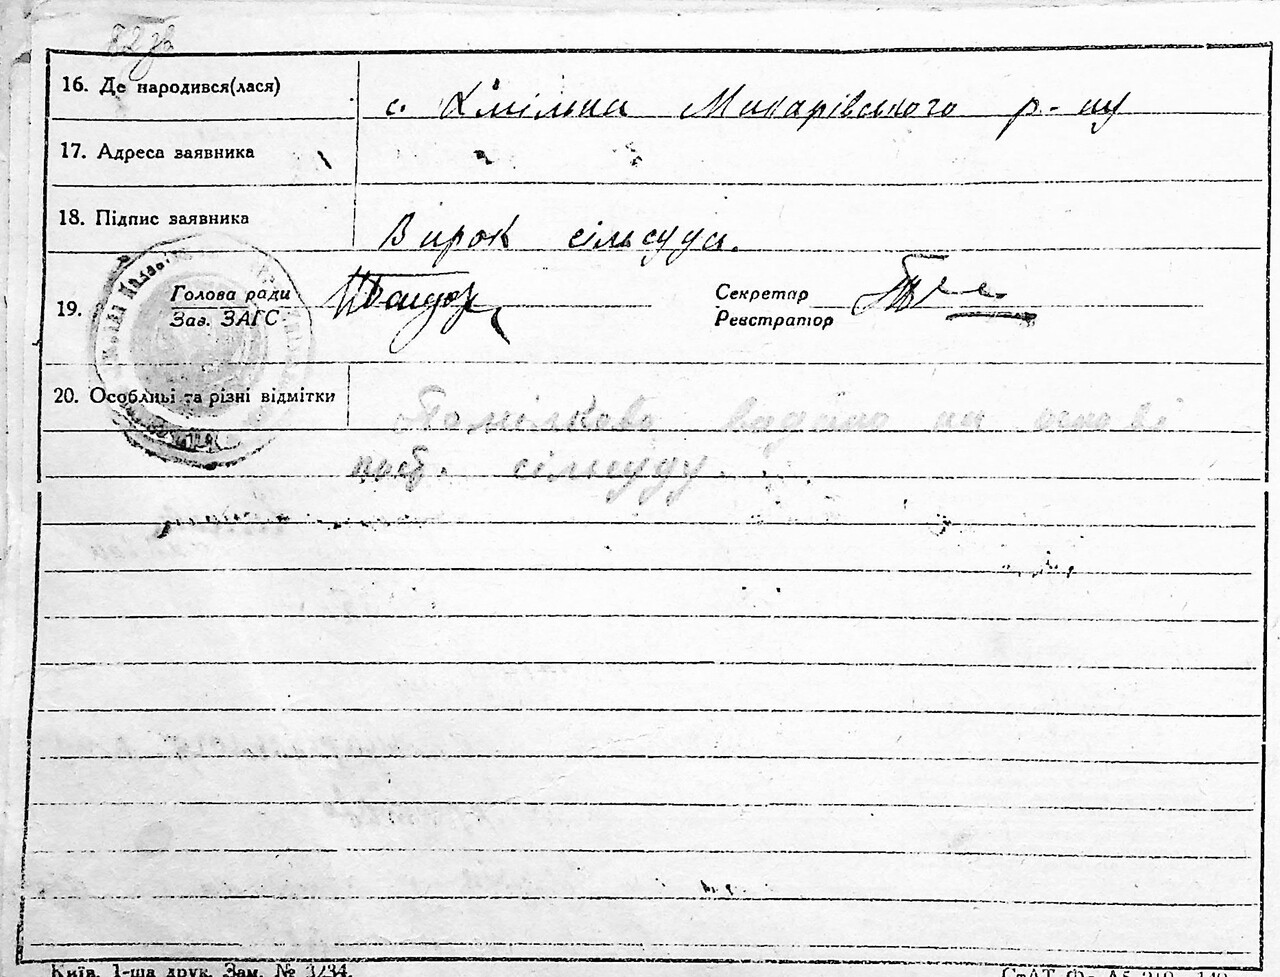 82зв
16. Де народився(лася)
с. Хмільна Макарівського р-ну
17. Адреса заявника
18. Підпис заявника
Вирок сільсуда.
19.
Голова ради
Зав. ЗАГС
Секретар
Реєстратор
20. Особливі та різні відмітки
Помілково видано на основі
пост. сільсуду.
Київ. 1-ша друк. Зам. № 3234.